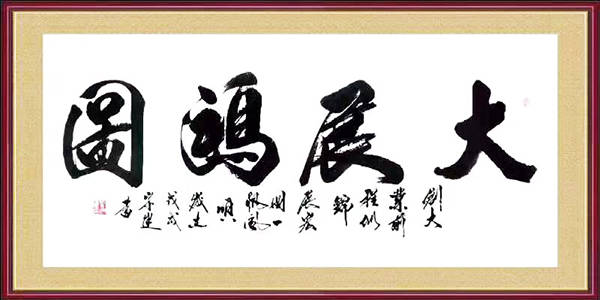 大展鴻圖
創大
業前
程似
錦
展宏
圖一
帆風
順
歲在
戊戌